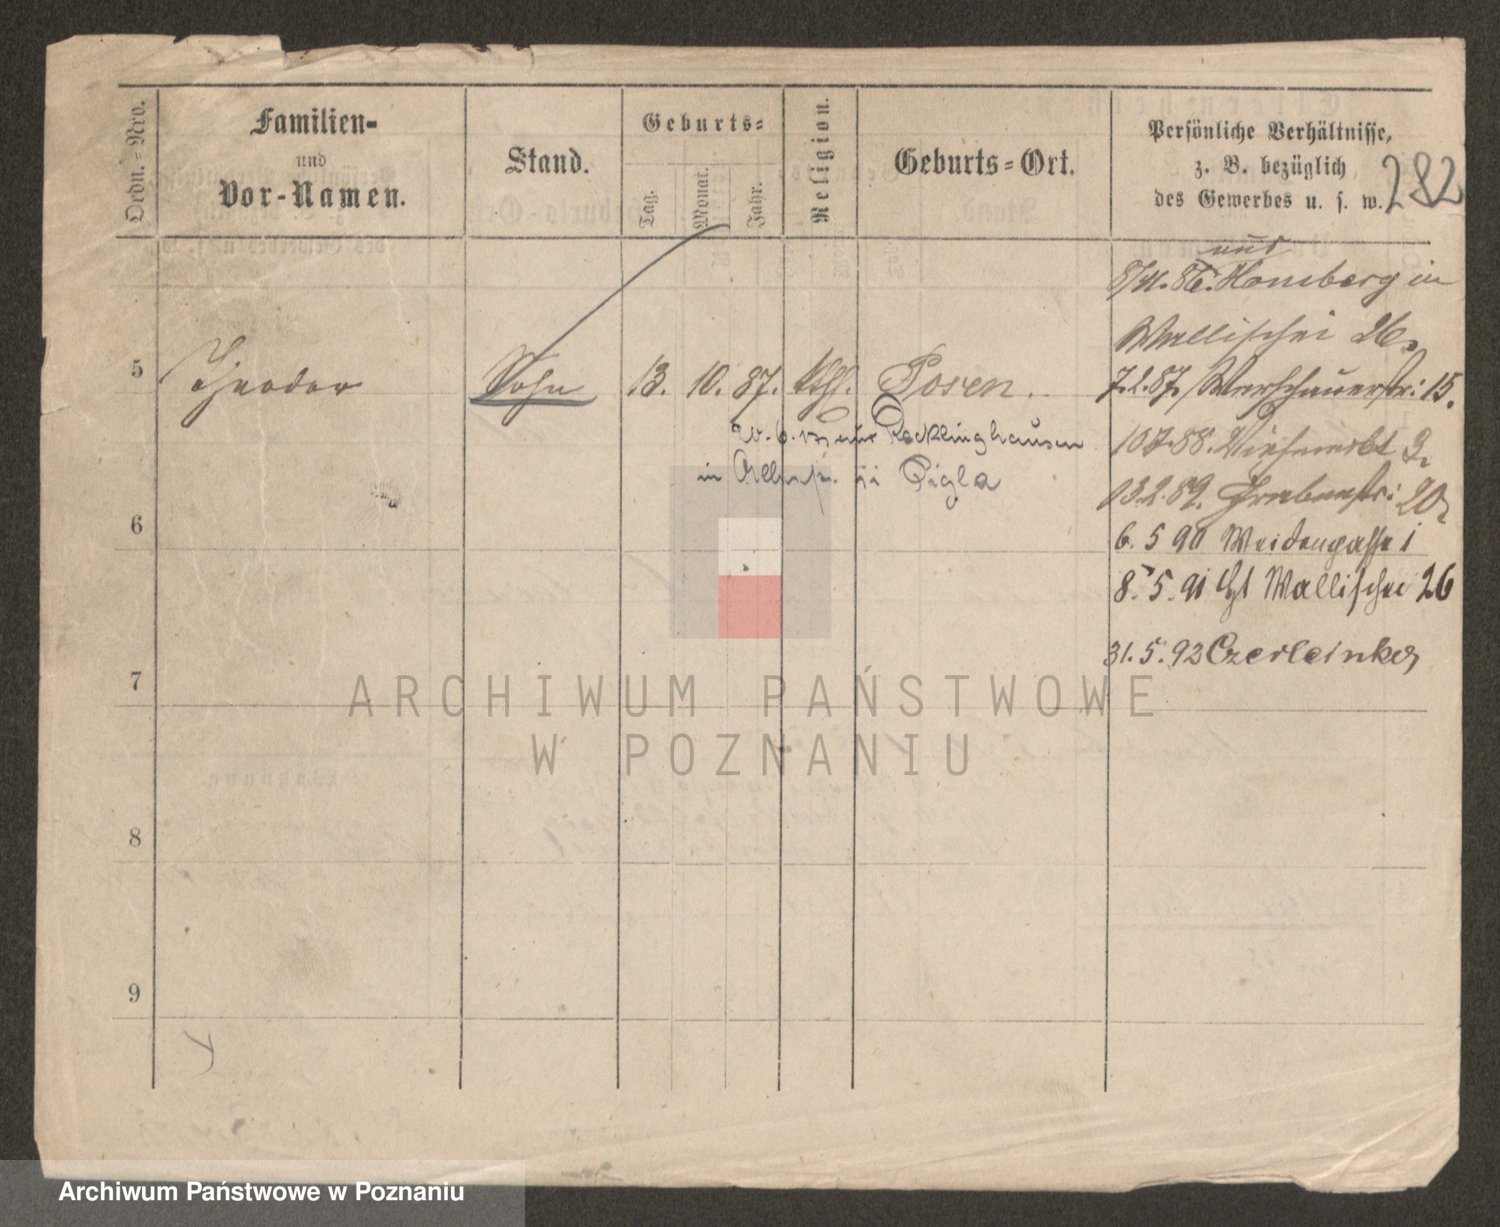 Ordn.-Nro.
Familien-
und
Vor-Namen.
Stand.
Geburts-
Tag.
Monat.
Jahr.
Religion.
Geburts-Ort.
Persönliche Verhältnisse,
z. B. bezüglich
des Gewerbes u. s. w.
282
und
8/11. 86. Homberg in
Wallischei 26.
5 Theodor Sohn 13. 10. 87. kth. Posen.
7.2.87. Warschauerstr: 15.
aus Recklinghausen
10 7 88. Viehmarkt 3.
in zü Pigla
13 2. 89. Grabenstr: 20
6
6. 5 90 Weidengasse 1
8. 5. 91 Wallischei 26
31. 5. 92 Czerleinko
7
ARCHIWUM PAŃSTWOWE
W POZNANIU
8
9
Archiwum Państwowe w Poznaniu